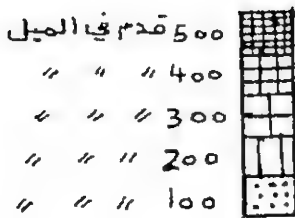 500 قدم في الميل
400 〃 〃 〃
300 〃 〃 〃
200 〃 〃 〃
100 〃 〃 〃